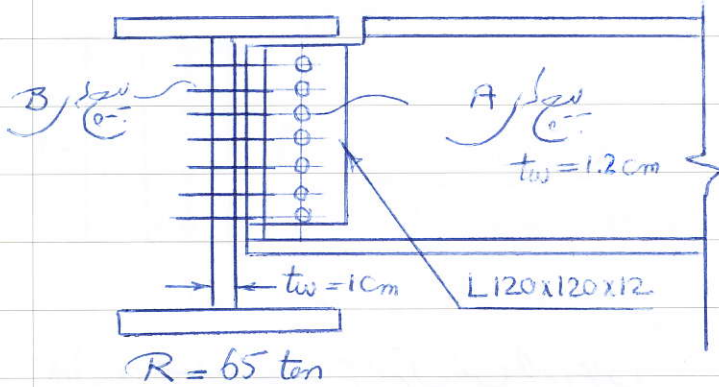 پیچهای B
پیچهای A
tw = 1.2 cm
tw = 1 cm
L120x120x12
R = 65 ton